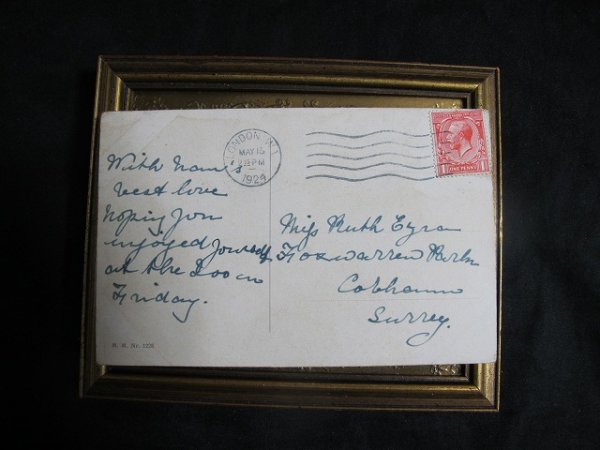 LONDON W.1
MAY 15
1924
ONE PENNY
With Nam's
best love
hoping you
enjoyed yourself
at the Zoo on
Friday.
Miss Ruth Eyre
Foxwarren Park
Cobham
Surrey.